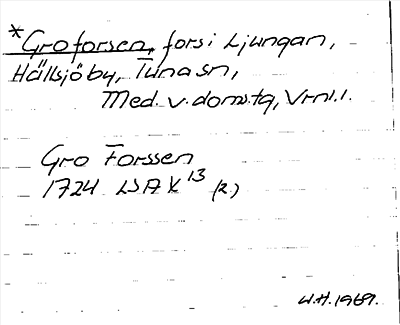 *Groforsen, fors i Ljungan,
Hällsjö by, Tuna sn,
Med. v. doms.tg, Vrnl.l.
Gro Forssen
1724 LSA X 13 (2.)
W.H. 1969.